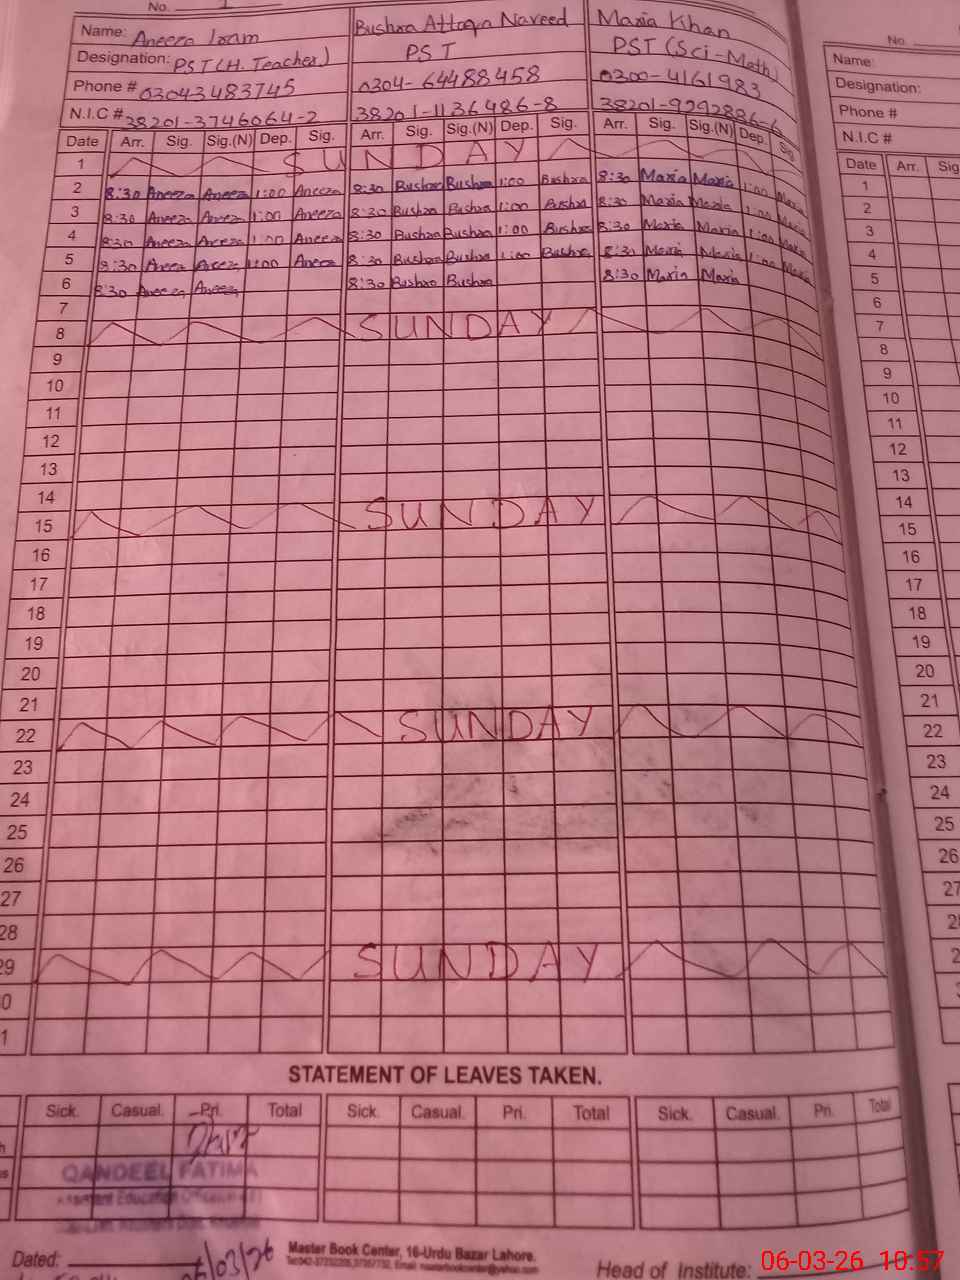 No. 1
Name: Aneeza Iram Bushra Attoqa Naveed Maria Khan
Designation: PST (H. Teacher) PST PST (Sci-Math)
Phone # 03043483745 0304-64488458 0300-4161983
N.I.C # 38201-3746064-2 38201-1136486-8 38201-9292886-6
Date Arr. Sig. Sig.(N) Dep. Sig. Arr. Sig. Sig.(N) Dep. Sig. Arr. Sig. Sig.(N) Dep. Sig.
1 SUNDAY
2 8:30 Aneeza Aneeza 1:00 Aneeza 8:30 Bushra Bushra 1:00 Bushra 8:30 Maria Maria 1:00 Maria
3 8:30 Aneeza Aneeza 1:00 Aneeza 8:30 Bushra Bushra 1:00 Bushra 8:30 Maria Maria 1:00 Maria
4 8:30 Aneeza Aneeza 1:00 Aneeza 8:30 Bushra Bushra 1:00 Bushra 8:30 Maria Maria 1:00 Maria
5 8:30 Aneeza Aneeza 1:00 Aneeza 8:30 Bushra Bushra 1:00 Bushra 8:30 Maria Maria 1:00 Maria
6 8:30 Aneeza Aneeza 8:30 Bushra Bushra 8:30 Maria Maria
7
8 SUNDAY
9
10
11
12
13
14
15 SUNDAY
16
17
18
19
20
21
22 SUNDAY
23
24
25
26
27
28
29 SUNDAY
0
1
STATEMENT OF LEAVES TAKEN.
Sick. Casual. Pri. Total Sick. Casual. Pri. Total Sick. Casual. Pri. Total
QANDEEL FATIMA
Assistant Education Officer
Dated: /03/26
Master Book Center, 16-Urdu Bazar Lahore.
Head of Institute:
No.
Name:
Designation:
Phone #
N.I.C #
Date Arr. Sig
1
2
3
4
5
6
7
8
9
10
11
12
13
14
15
16
17
18
19
20
21
22
23
24
25
26
27
06-03-26 10:57